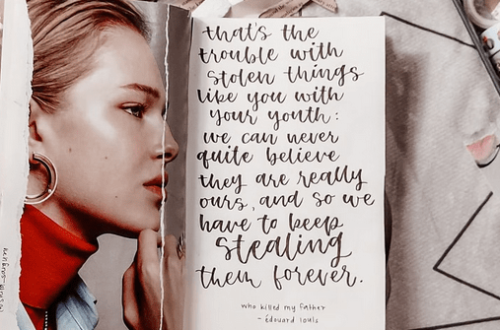 that's the
trouble with
stolen things
like you with
your youth:
we can never
quite believe
they are really
ours, and so we
have to keep
stealing
them forever.
who killed my father
- Édouard louis